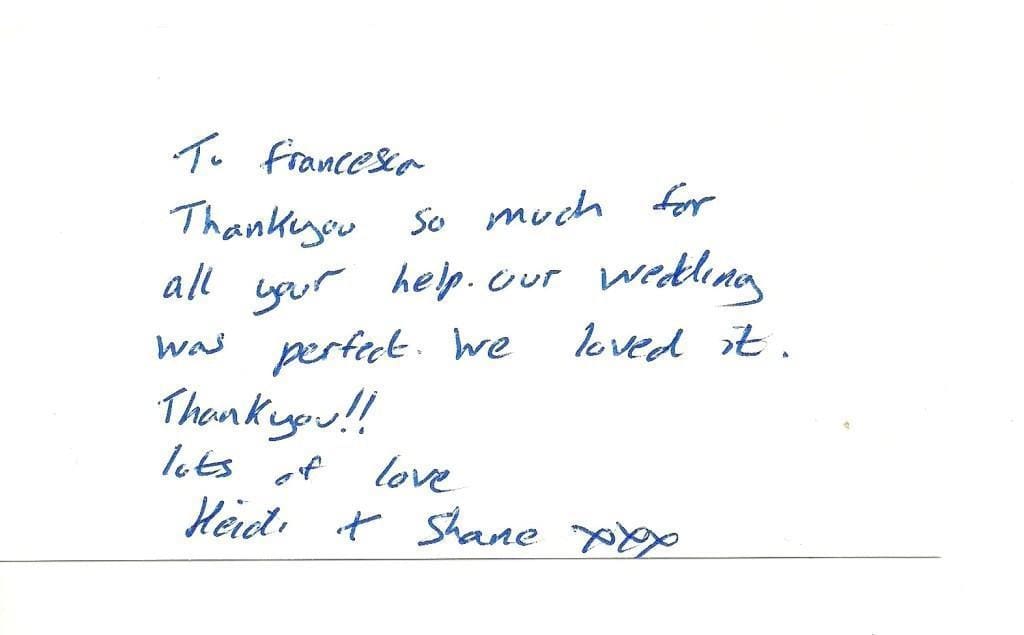 To Francesca
Thankyou so much for
all your help. our wedding
was perfect. We loved it.
Thankyou!!
lots of love
Heidi + Shane xxx